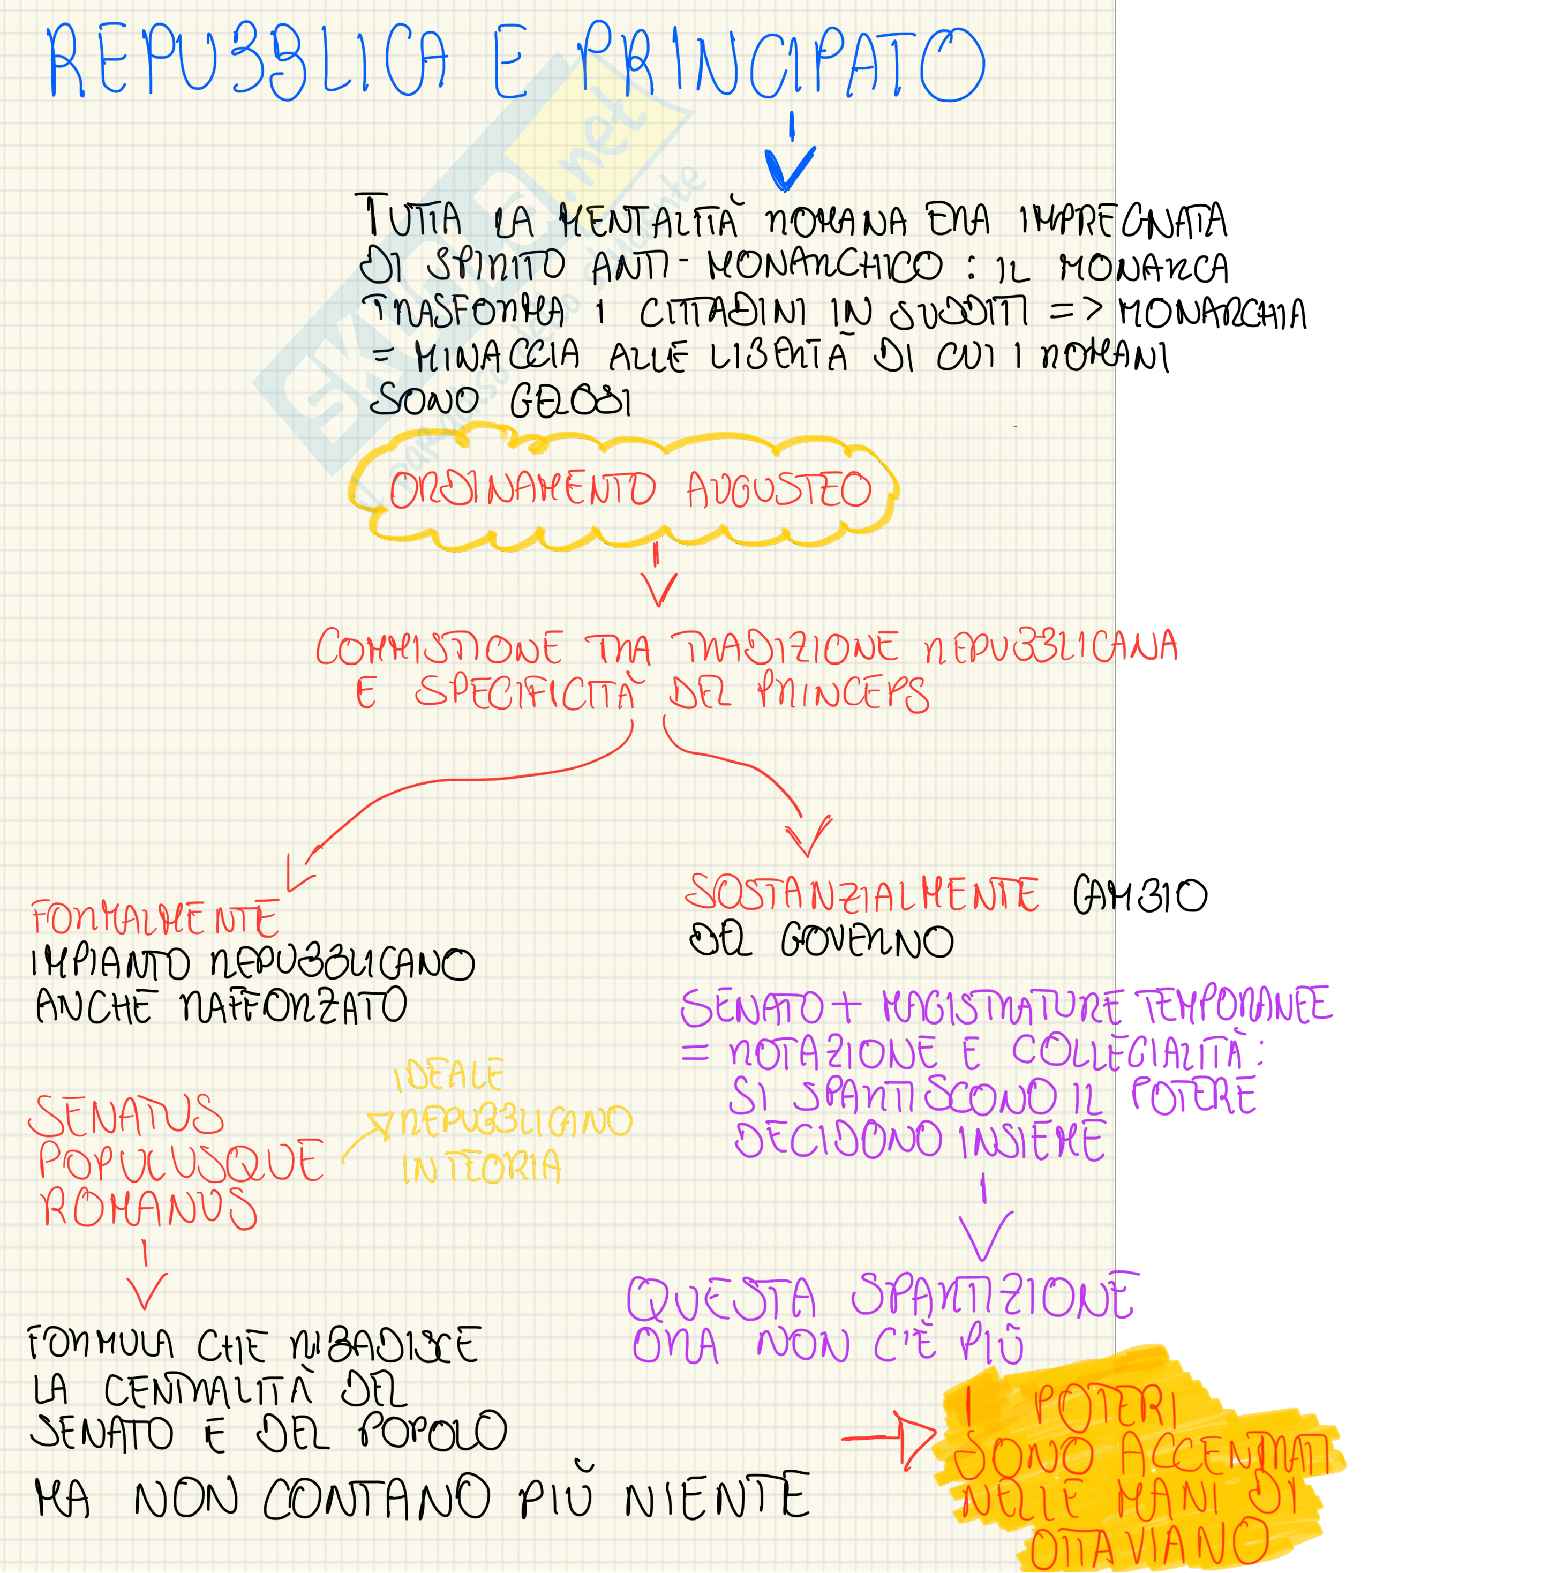 REPUBBLICA E PRINCIPATO
TUTTA LA MENTALITÀ ROMANA ERA IMPREGNATA
DI SPIRITO ANTI-MONARCHICO: IL MONARCA
TRASFORMA I CITTADINI IN SUDDITI => MONARCHIA
= MINACCIA ALLE LIBERTÀ DI CUI I ROMANI
SONO GELOSI
ORDINAMENTO AUGUSTEO
COMMISTIONE TRA TRADIZIONE REPUBBLICANA
E SPECIFICITÀ DEL PRINCEPS
FORMALMENTE
IMPIANTO REPUBBLICANO
ANCHE RAFFORZATO
SENATUS
POPULUSQUE
ROMANUS
IDEALE
REPUBBLICANO
IN TEORIA
FORMULA CHE RIBADISCE
LA CENTRALITÀ DEL
SENATO E DEL POPOLO
MA NON CONTANO PIÙ NIENTE
SOSTANZIALMENTE CAMBIO
DEL GOVERNO
SENATO + MAGISTRATURE TEMPORANEE
= ROTAZIONE E COLLEGIALITÀ:
SI SPARTISCONO IL POTERE
DECIDONO INSIEME
QUESTA SPARTIZIONE
ORA NON C'È PIÙ
I POTERI
SONO ACCENTRATI
NELLE MANI DI
OTTAVIANO